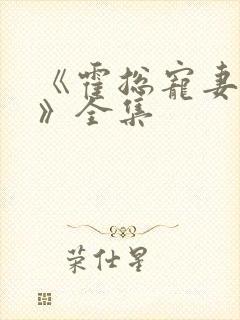 《霍总宠妻
》全集
荣仕星